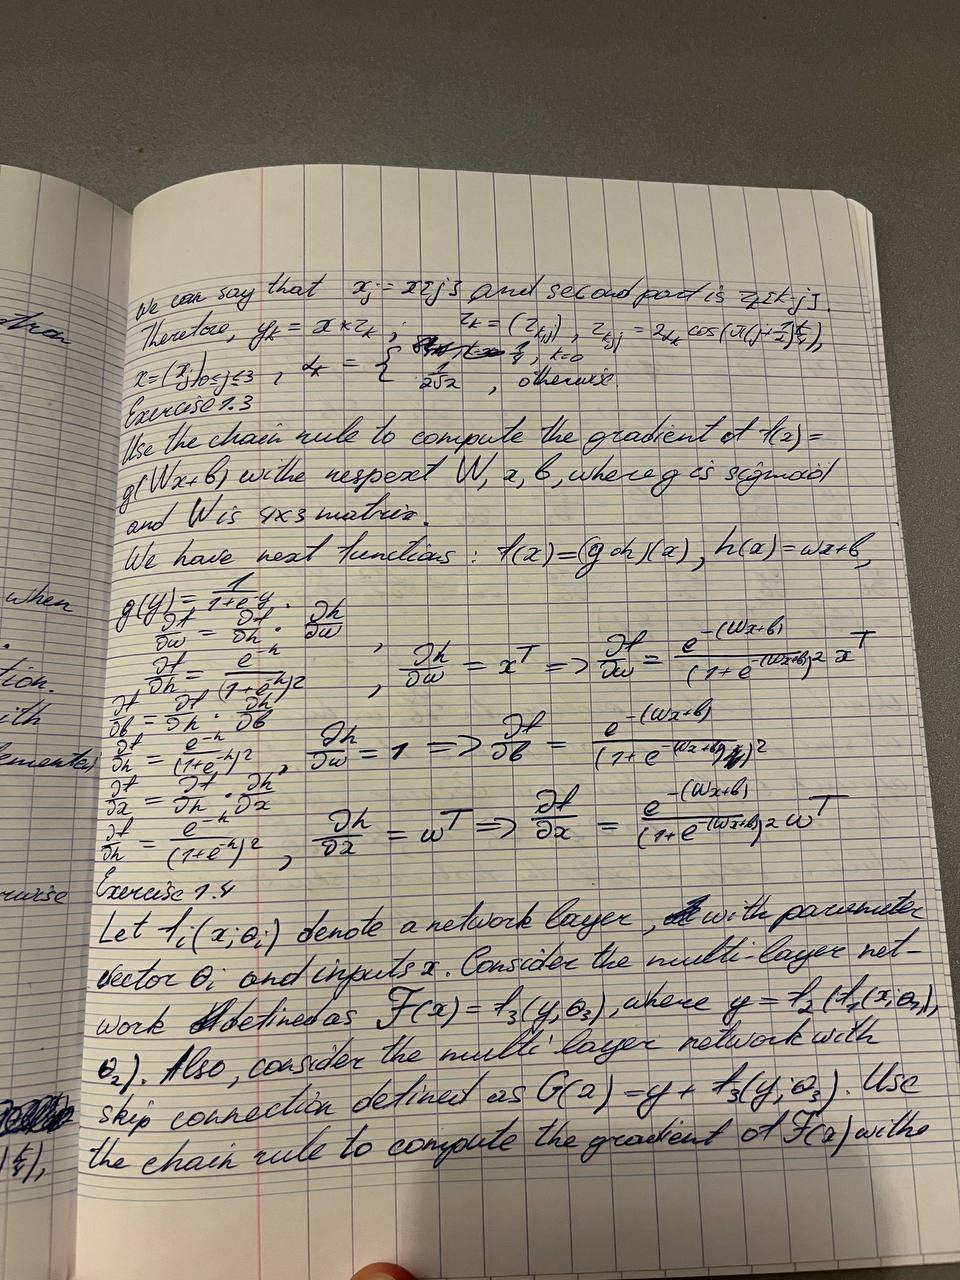 We can say that x_j = x[j] and second part is z_k[k-j].
Therefore, y_k = x * z_k ; z_k = (z_kj), z_kj = 2α_k cos(π(j+1/2)k/4),
x=(x_j)_0≤j≤3 , α_k = { 1/4, k=0
1/2√2 , otherwise.
Exercise 1.3
Use the chain rule to compute the gradient of f(x)=
g(Wx+b) withe respext W, x, b, where g is sigmoid
and W is 4x3 matrix.
We have next functions : f(x)=(g∘h)(x), h(x)=wx+b,
g(y)= 1/(1+e^-y).
∂f/∂w = ∂f/∂h · ∂h/∂w ,
∂f/∂h = e^-h/(1+e^-h)^2 , ∂h/∂w = x^T => ∂f/∂w = e^-(Wx+b)/(1+e^-(Wx+b))^2 x^T
∂f/∂b = ∂f/∂h · ∂h/∂b
∂f/∂h = e^-h/(1+e^-h)^2 , ∂h/∂w = 1 => ∂f/∂b = e^-(Wx+b)/(1+e^-(Wx+b))^2
∂f/∂x = ∂f/∂h · ∂h/∂x
∂f/∂h = e^-h/(1+e^-h)^2 , ∂h/∂x = w^T => ∂f/∂x = e^-(Wx+b)/(1+e^-(Wx+b))^2 w^T
Exercise 1.4
Let f_i(x;θ_i) denote a network layer, with parameter
vector θ_i and inputs x. Consider the multi-layer net-
work defined as F(x) = f_3(y,θ_3), where y = f_2(f_1(x;θ_1),
θ_2). Also, consider the multi layer network with
skip connection defined as G(x) = y + f_3(y;θ_3). Use
the chain rule to compute the gradient of F(x) withe
when
tion.
ith
emented
rwise